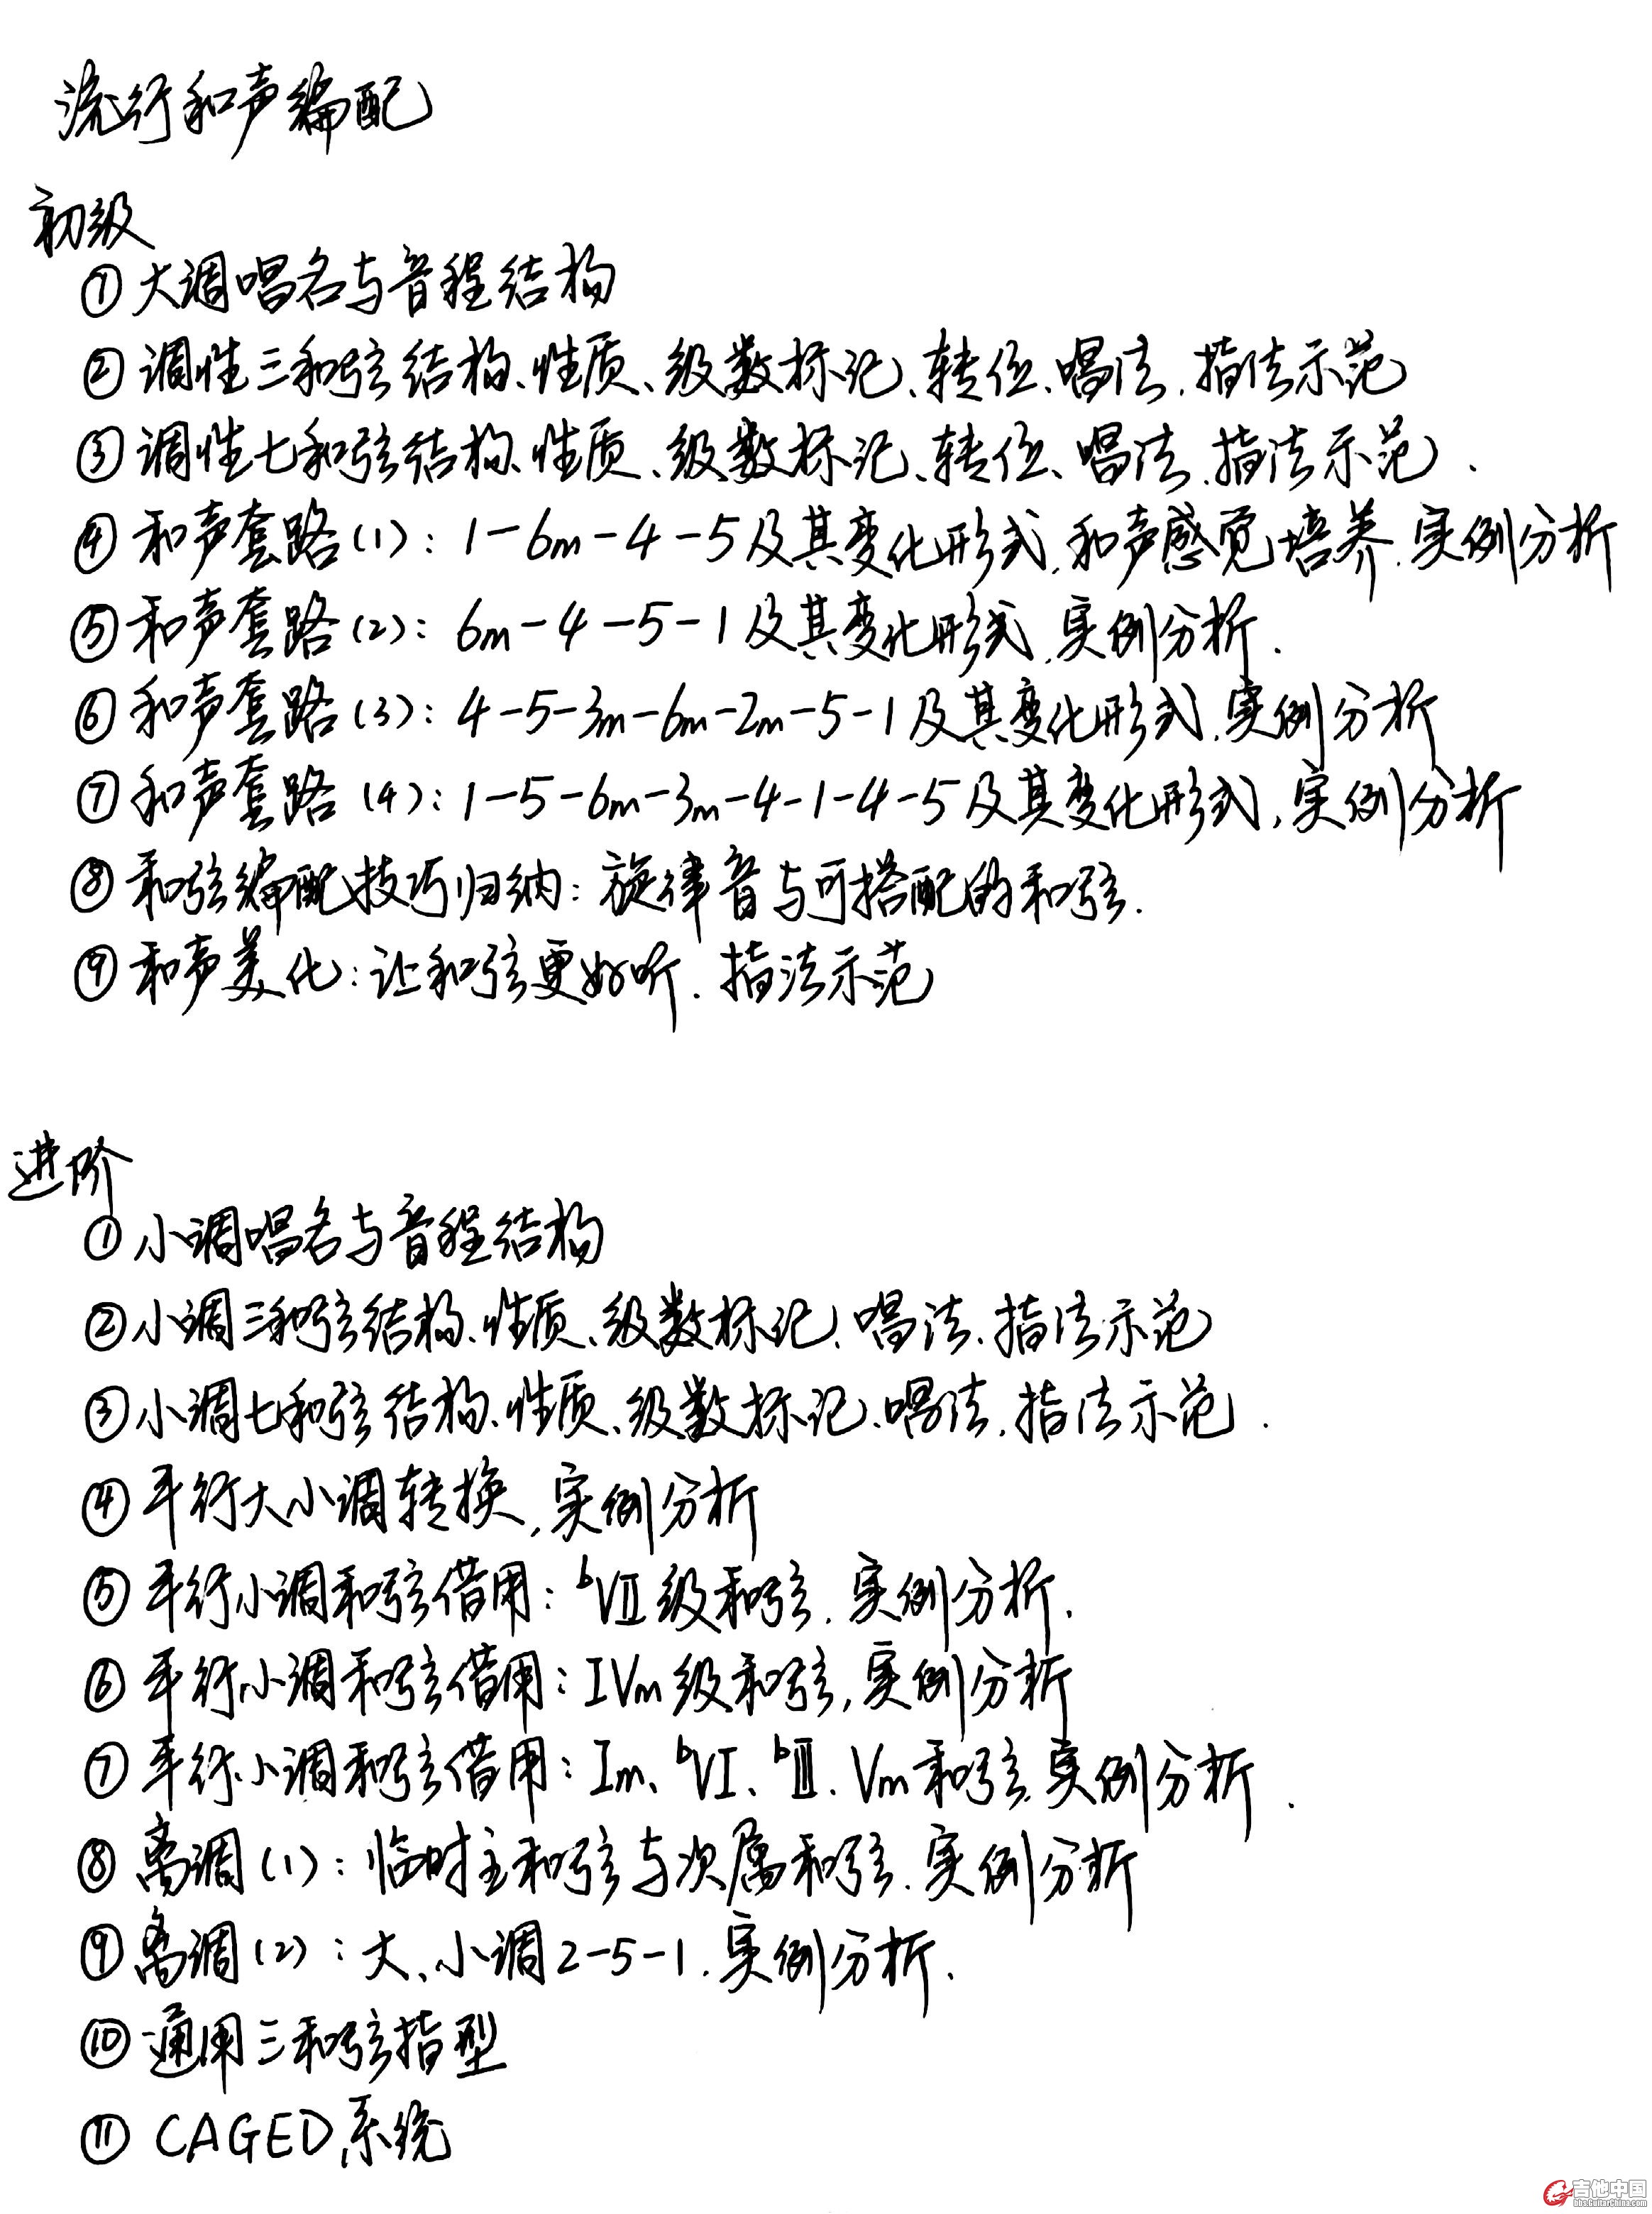 流行和声编配
初级
①大调唱名与音程结构
②调性三和弦结构、性质、级数标记、转位、唱法,指法示范
③调性七和弦结构、性质、级数标记、转位、唱法,指法示范.
④和声套路(1):1-6m-4-5及其变化形式,和声感觉培养.实例分析
⑤和声套路(2):6m-4-5-1及其变化形式,实例分析.
⑥和声套路(3):4-5-3m-6m-2m-5-1及其变化形式,实例分析
⑦和声套路(4):1-5-6m-3m-4-1-4-5及其变化形式,实例分析
⑧和弦编配技巧归纳:旋律音与可搭配的和弦.
⑨和声美化:让和弦更好听.指法示范
进阶
①小调唱名与音程结构
②小调三和弦结构、性质、级数标记、唱法、指法示范
③小调七和弦结构、性质、级数标记、唱法,指法示范.
④平行大小调转换,实例分析
⑤平行小调和弦借用:bⅦ级和弦,实例分析.
⑥平行小调和弦借用:IVm级和弦,实例分析
⑦平行小调和弦借用:Im、bVI、bⅢ.Vm和弦,实例分析.
⑧离调(1):临时主和弦与次属和弦.实例分析
⑨离调(2):大、小调2-5-1.实例分析.
⑩通用三和弦指型
⑪CAGED系统
吉他中国
bbs.GuitarChina.com